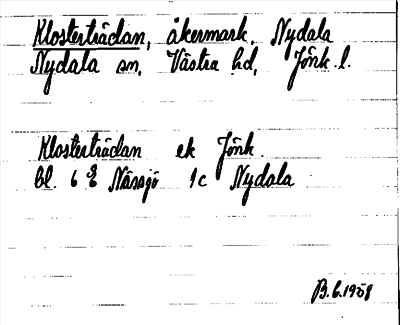 Klosterträdan, åkermark, Nydala
Nydala sn, Västra hd, Jönk. l.
Klosterträdan ek Jönk.
bl. 6 E Nässjö 1c Nydala
B.G.1958